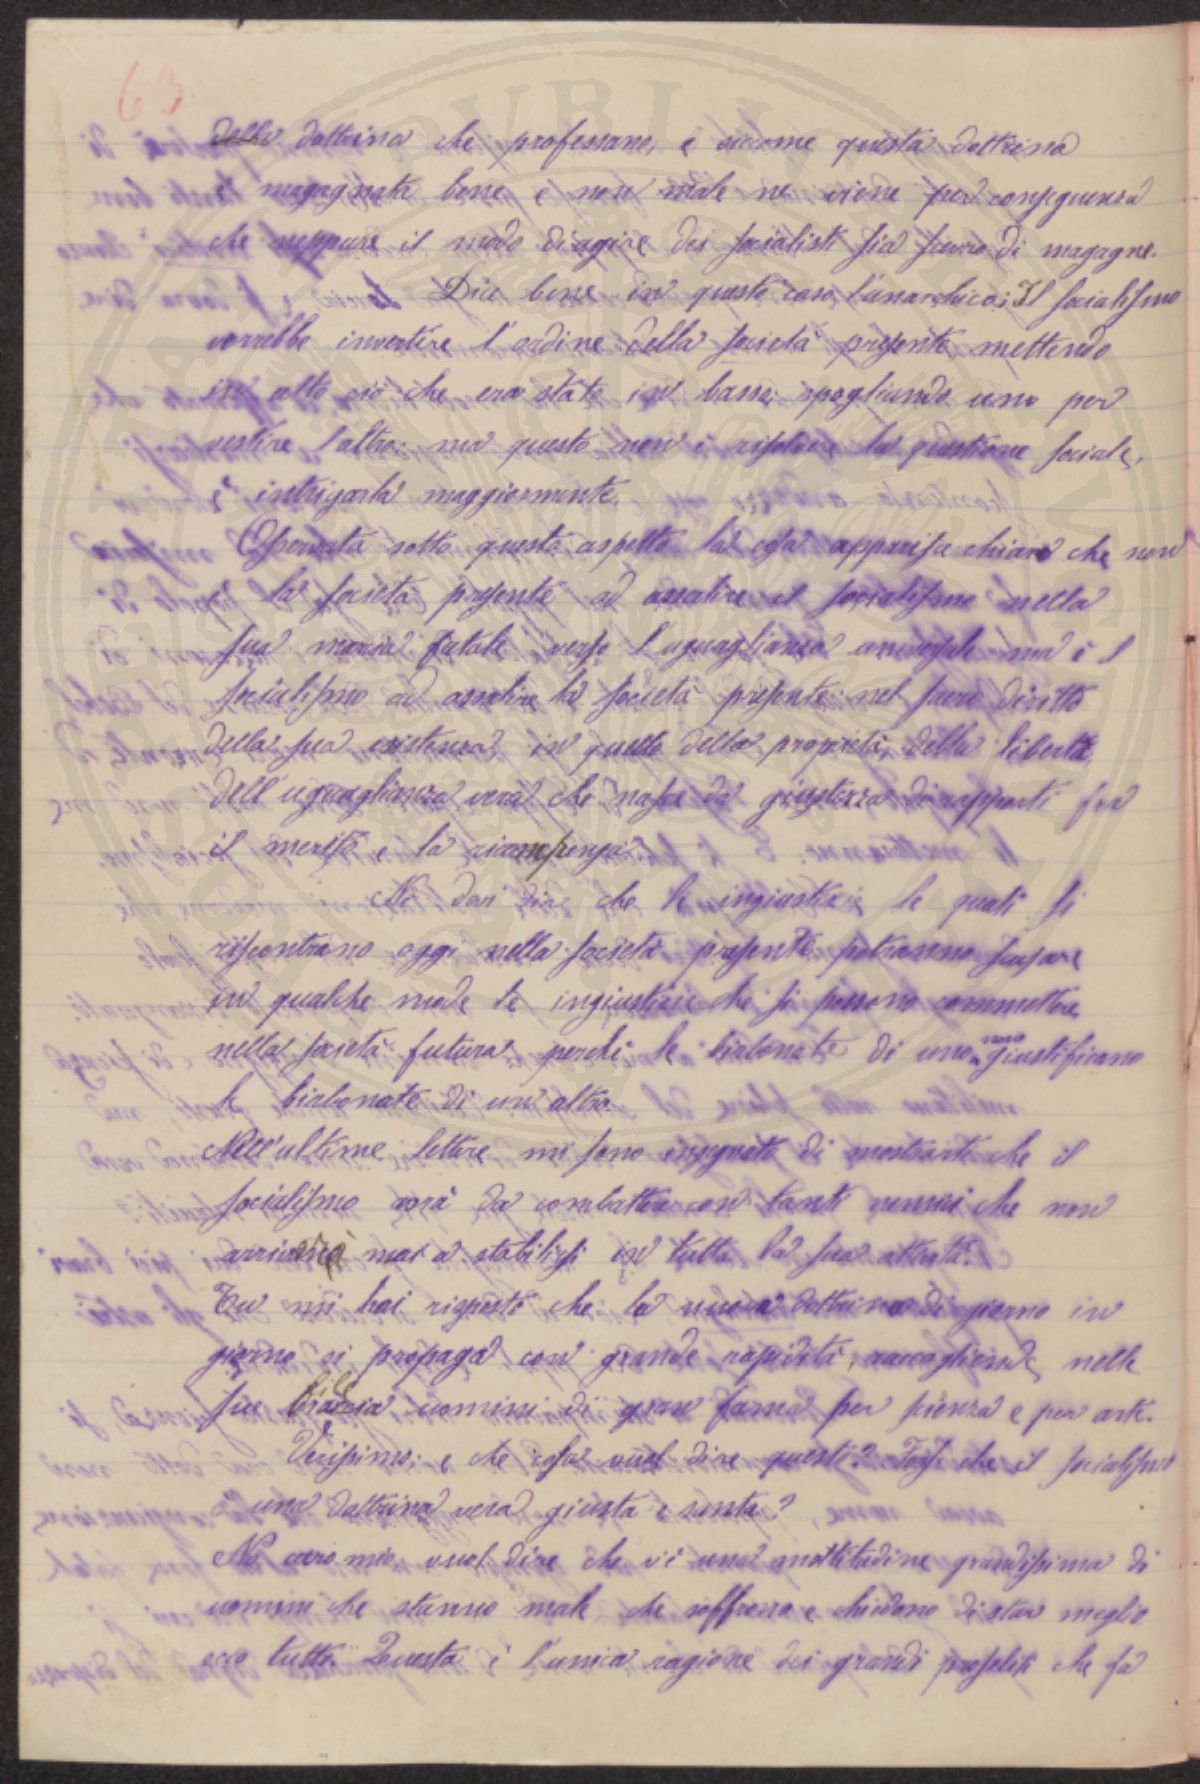 63
della dottrina che professano, e siccome questa dottrina
è magagnata bene e non male ne viene per conseguenza
che neppure il modo di agire dei socialisti sia scevro di magagne.
Dice bene in questo caso l'anarchico: Il socialismo
vorrebbe invertire l'ordine della società presente mettendo
in alto ciò che era stato in basso, spogliando uno per
vestire l'altro: ma questo non è risolvere la questione sociale,
è intrigarla maggiormente.
Osservata sotto questo aspetto la cosa apparisce chiaro che non
è la società presente ad assalire il socialismo nella
sua marcia fatale verso l'uguaglianza universale ma è il
socialismo ad assalire la società presente nel sacro diritto
della sua esistenza, in quello della proprietà, della libertà
dell'uguaglianza vera che nasce da giustezza di rapporti fra
il merito e la ricompensa.
Nè devi dire che le ingiustizie le quali si
riscontrano oggi nella società presente potranno scusare
in qualche modo le ingiustizie che si possono commettere
nella società futura, perchè le birbonate di uno non giustificano
le birbonate di un altro.
Nell'ultime lettere mi sono ingegnato di mostrarti che il
socialismo avrà da combattere con tanti nemici che non
arriverà mai a stabilirsi in tutta la sua
Tu mi hai risposto che la nuova dottrina di giorno in
giorno si propaga con grande rapidità, raccogliendo nelle
sue braccia uomini di gran fama per scienza e per arte.
Verissimo: e che cosa vuol dire questo? Forse che il socialismo
è una dottrina vera giusta e santa?
No caro mio, vuol dire che v'è una moltitudine grandissima di
uomini che stanno male che soffrono e chiedono di star meglio
ecco tutto. Questa è l'unica ragione dei grandi proseliti che fa